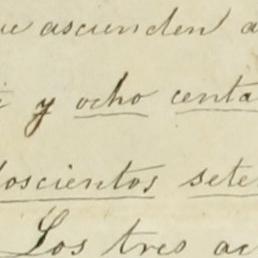 ue ascienden a
y ocho centa
doscientos sete
Los tres ac